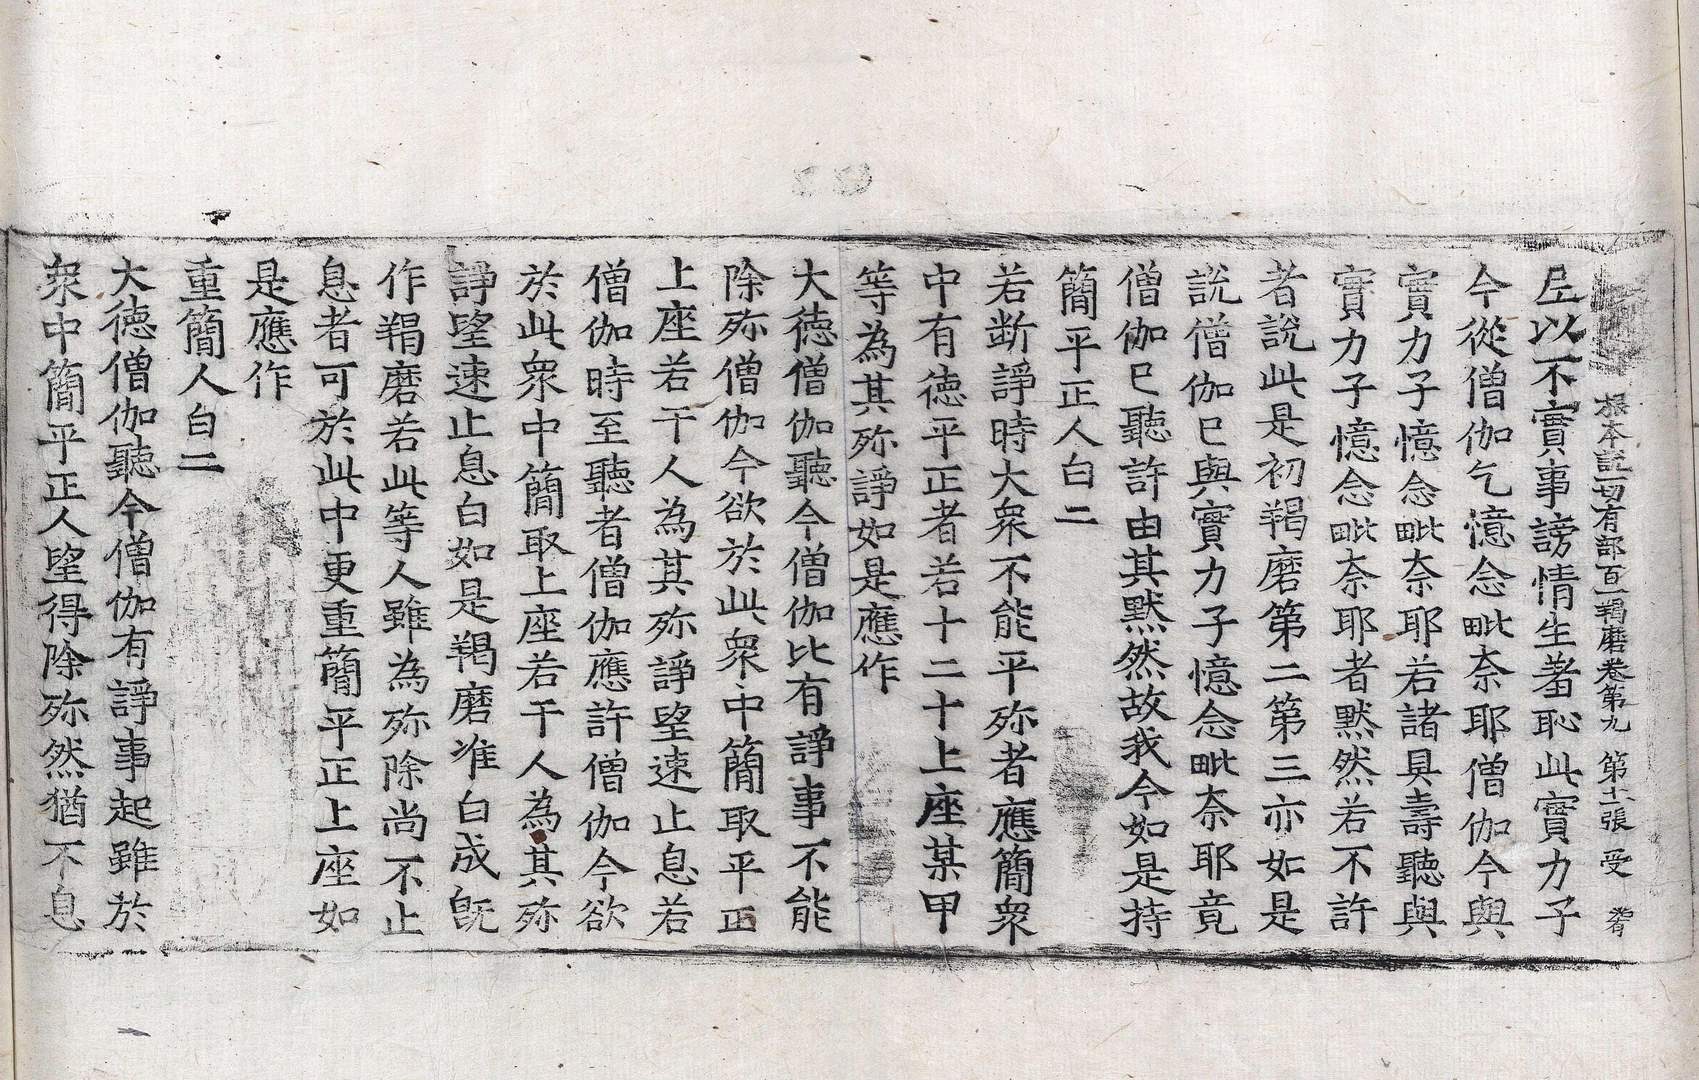 根本說一切有部百一羯磨卷第九　第十一張　受
𡰱以不實事謗情生羞恥此實力子
今從僧伽乞憶念毗奈耶僧伽今與
實力子憶念毗奈耶若諸具壽聽與
實力子憶念毗奈耶者默然若不許
者說此是初羯磨第二第三亦如是
說僧伽已與實力子憶念毗奈耶竟
僧伽已聽許由其默然故我今如是持
簡平正人白二
若斷諍時大衆不能平殄者應簡衆
中有德平正者若十二十上座某甲
等為其殄諍如是應作
大德僧伽聽今僧伽比有諍事不能
除殄僧伽今欲於此衆中簡取平正
上座若干人為其殄諍望速止息若
僧伽時至聽者僧伽應許僧伽今欲
於此衆中簡取上座若干人為其殄
諍望速止息白如是羯磨准白成旣
作羯磨若此等人雖為殄除尚不止
息者可於此中更重簡平正上座如
是應作
重簡人白二
大德僧伽聽今僧伽有諍事起雖於
衆中簡平正人望得除殄然猶不息